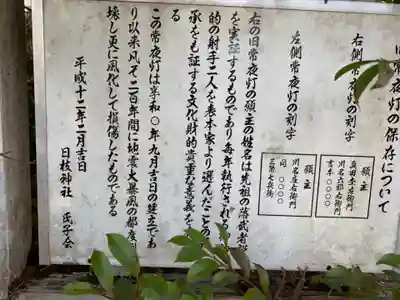 旧常夜灯の保存について
右側常夜灯の刻字
願主
真田金左衛門
川名久郎右衛門
吉本〇〇〇〇
左側常夜灯の刻字
願主
川名庄右衛門
同 〇〇〇〇
三澤七兵衛
右の旧常夜灯の願主の姓名は先祖の落武者説
を実証するものであり毎年執行される
的の射手二人を表本家より選んだことの
承をも証する文化財的貴重な意義を
る
この常夜灯は享和〇年九月吉日の建立であ
り以来凡そ二百年間に地震大暴風の都度
壊し更に風化して損傷したものである
平成十二年二月吉日
日枝神社 氏子会